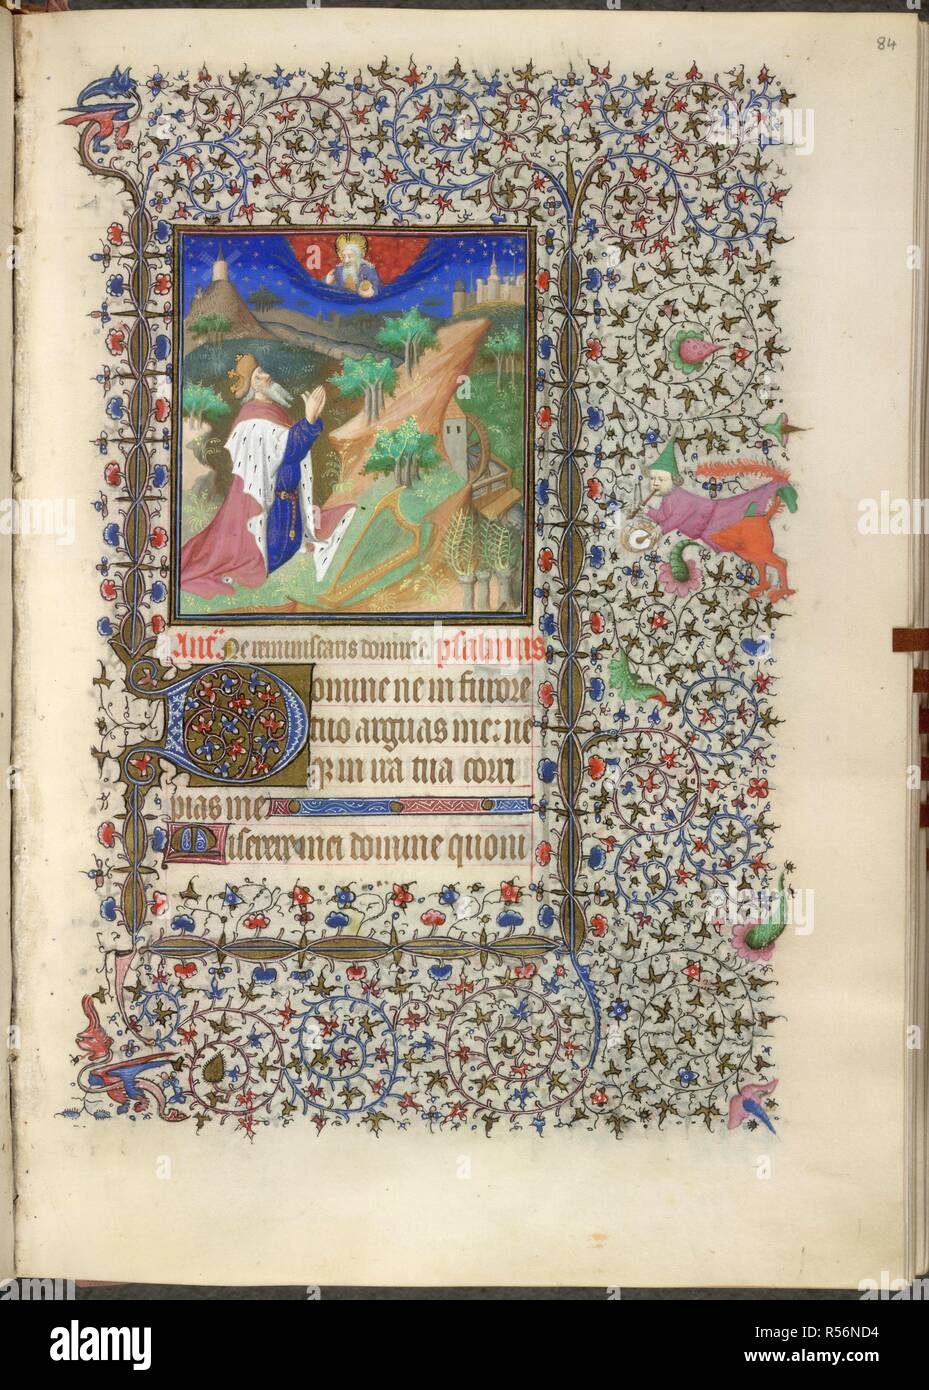 84
Ant. Ne reminiscaris domine. psalmus
Domine ne in furore
tuo arguas me: ne
q3 in ira tua corri
pias me
Miserere mei domine quoni
alamy
Image ID: R56ND4
www.alamy.com